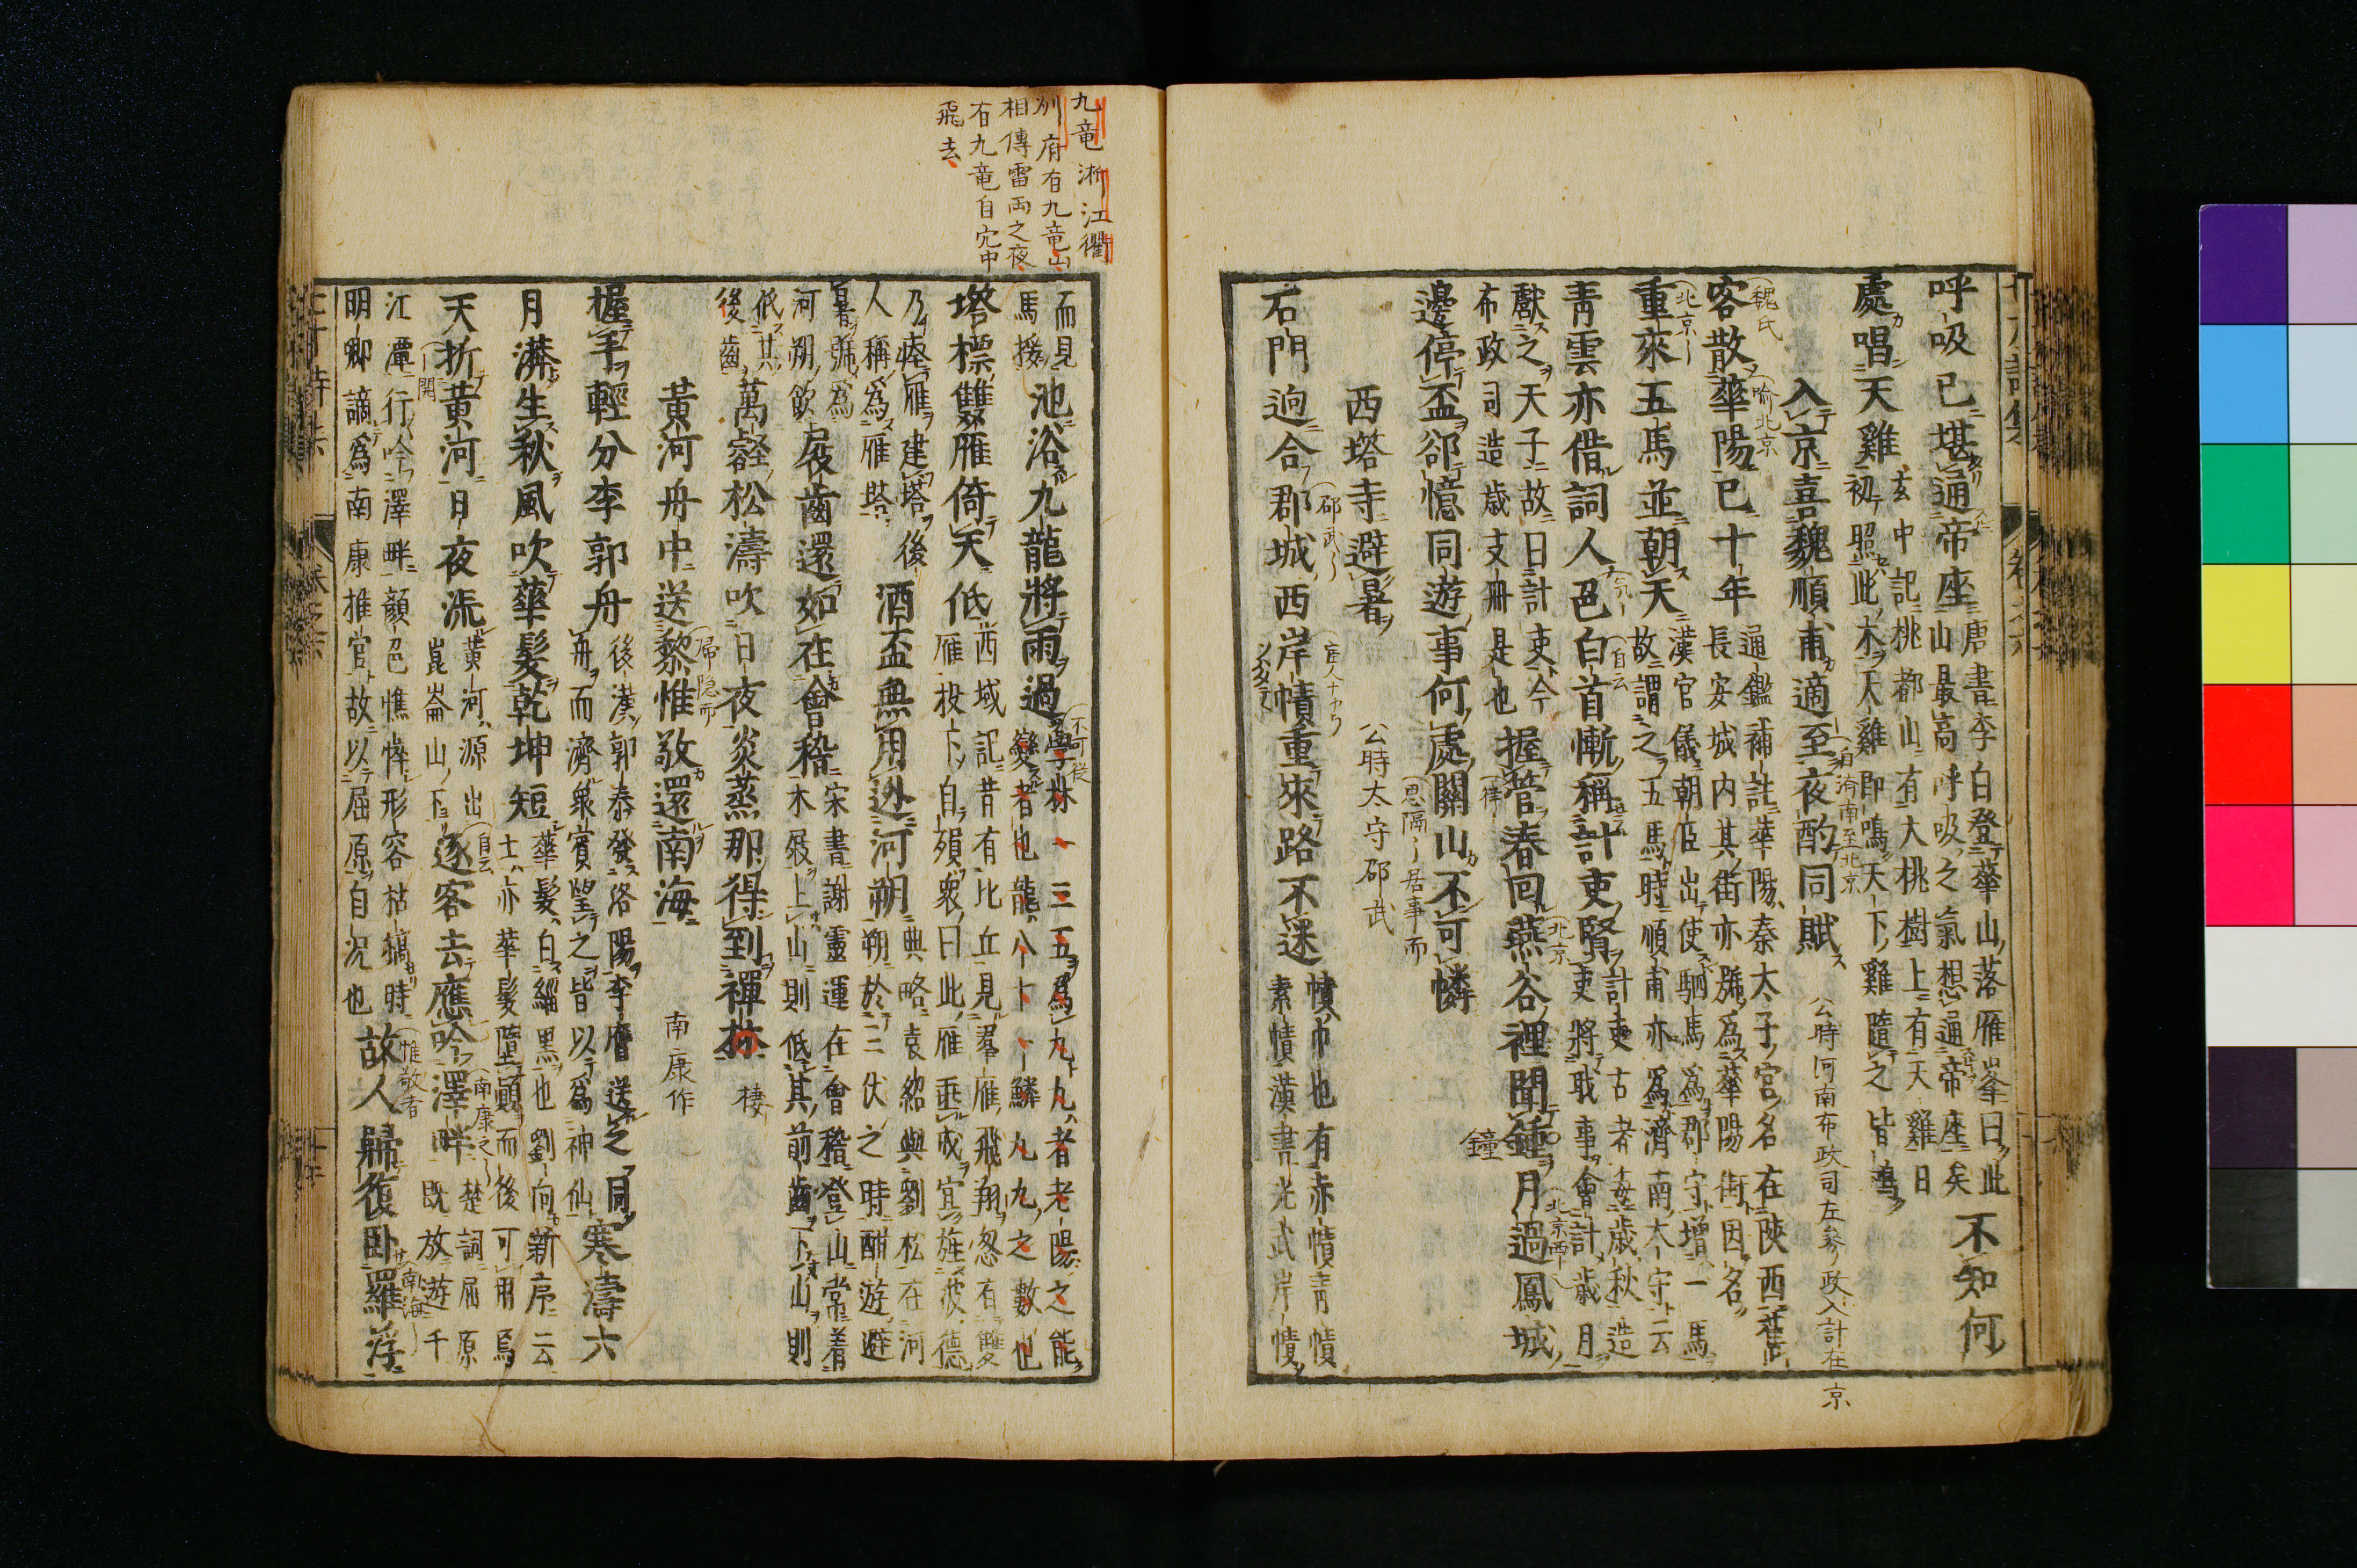 呼吸已堪通帝座
唐書李白登華山落雁峯曰此
山最高呼吸之氣想通帝座矣
不知何
處唱天雞
玄中記桃都山有大桃樹上有天雞日
初照此木天雞即鳴天下雞隨之皆鳴
入京喜魏順甫適至夜酌同賦
公時河南布政司左參政入計在京
客散華陽已十年
通鑑補註華陽秦太子宮名在陝西舊
長安城内其街亦號爲華陽街因名
重來五馬並朝天
漢官儀朝臣出使駟馬爲郡守增一馬
故謂之五馬時順甫亦爲濟南太守云
青雲亦借詞人色白首慚稱計吏賢
計吏古者每歲秋造
吏將職事會計歲月
獻之天子故曰計吏今
布政司造歲支册是也
握管春回燕谷裡聞鍾月過鳳城
鐘
邊停盃郤憶同遊事何處關山不可憐
西塔寺避暑
公時太守邵武
石門逈合郡城西岸幘重來路不迷
幘巾也有赤幘青幘
素幘漢書光武岸幘
九竜淅江衢
州府有九竜山
相傳雷雨之夜
有九竜自穴中
飛去
而見
馬援
池浴九龍將雨過
學林一一三五爲九九者老陽之能
變者也龍八十一鱗九九之數也
塔標雙雁倚天低
西域記昔有比丘見羣雁飛翔忽有雙
雁投下自殞衆曰此雁垂戒宜旌彼德
乃瘞雁建塔後
人稱爲雁塔
酒盃無用逃河朔
典略袁紹與劉松在河
朔於三伏之時酣遊避
暑號爲
河朔飲
屐齒還如在會稽
宋書謝靈運在會稽登山常着
木屐上山則低其前齒下山則
低其
後齒
萬壑松濤吹日夜炎蒸那得到禪林
棲
黃河舟中送黎惟敬還南海
南康作
握手輕分李郭舟
後漢郭泰發洛陽李膺送之同
舟而濟衆賓望之皆以爲神仙
寒濤六
月滿生秋風吹華髮乾坤短
華髮白緇黑也劉向新序云
士亦華髮墮顚而後可用焉
天折黃河日夜流
黃河源出
崑崙山下
逐客去應吟澤畔
楚詞屈原
既放遊千
江潭行吟澤畔顏色憔悴形容枯槁時
明卿謫爲南康推官故以屈原自况也
故人歸復卧羅浮